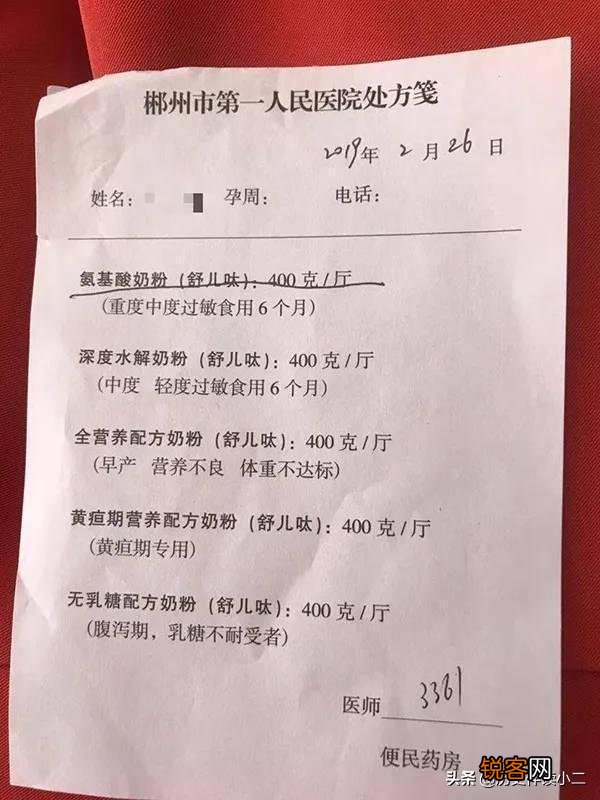 郴州市第一人民医院处方笺
2019年 2 月 26 日
姓名: 孕周: 电话:
氨基酸奶粉(舒儿呔):400克/厅
(重度中度过敏食用6个月)
深度水解奶粉(舒儿呔):400克/厅
(中度 轻度过敏食用6个月)
全营养配方奶粉(舒儿呔):400克/厅
(早产 营养不良 体重不达标)
黄疸期营养配方奶粉(舒儿呔):400克/厅
(黄疸期专用)
无乳糖配方奶粉(舒儿呔):400克/厅
(腹泻期,乳糖不耐受者)
医师 3361
便民药房
头条 小二
锐客网